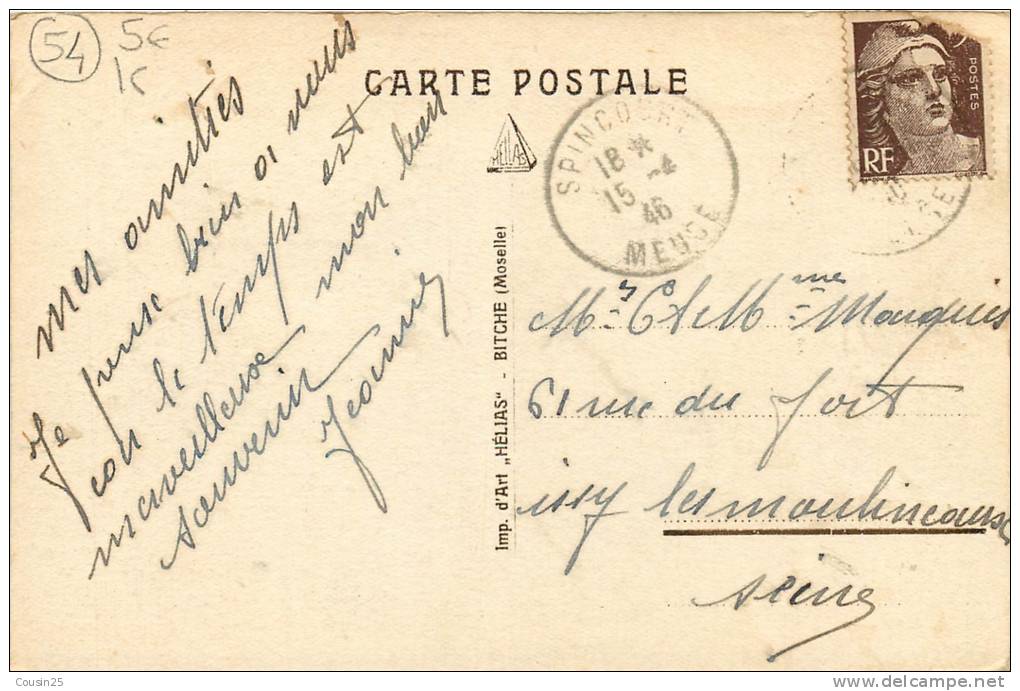 54
5€
1€
CARTE POSTALE
HELIAS
SPINCOURT
18 *
15 -4
46
MEUSE
POSTES
RF
mes amitiés
Je pense bien a vous
con le temps est
merveilleuse mon bon
souvenir Jeanine
Imp. d'Art „HÉLIAS" - BITCHE (Moselle)
Mr & Mme
61 rue du fort
issy les moulineaux
seine
Cousin25
www.delcampe.net